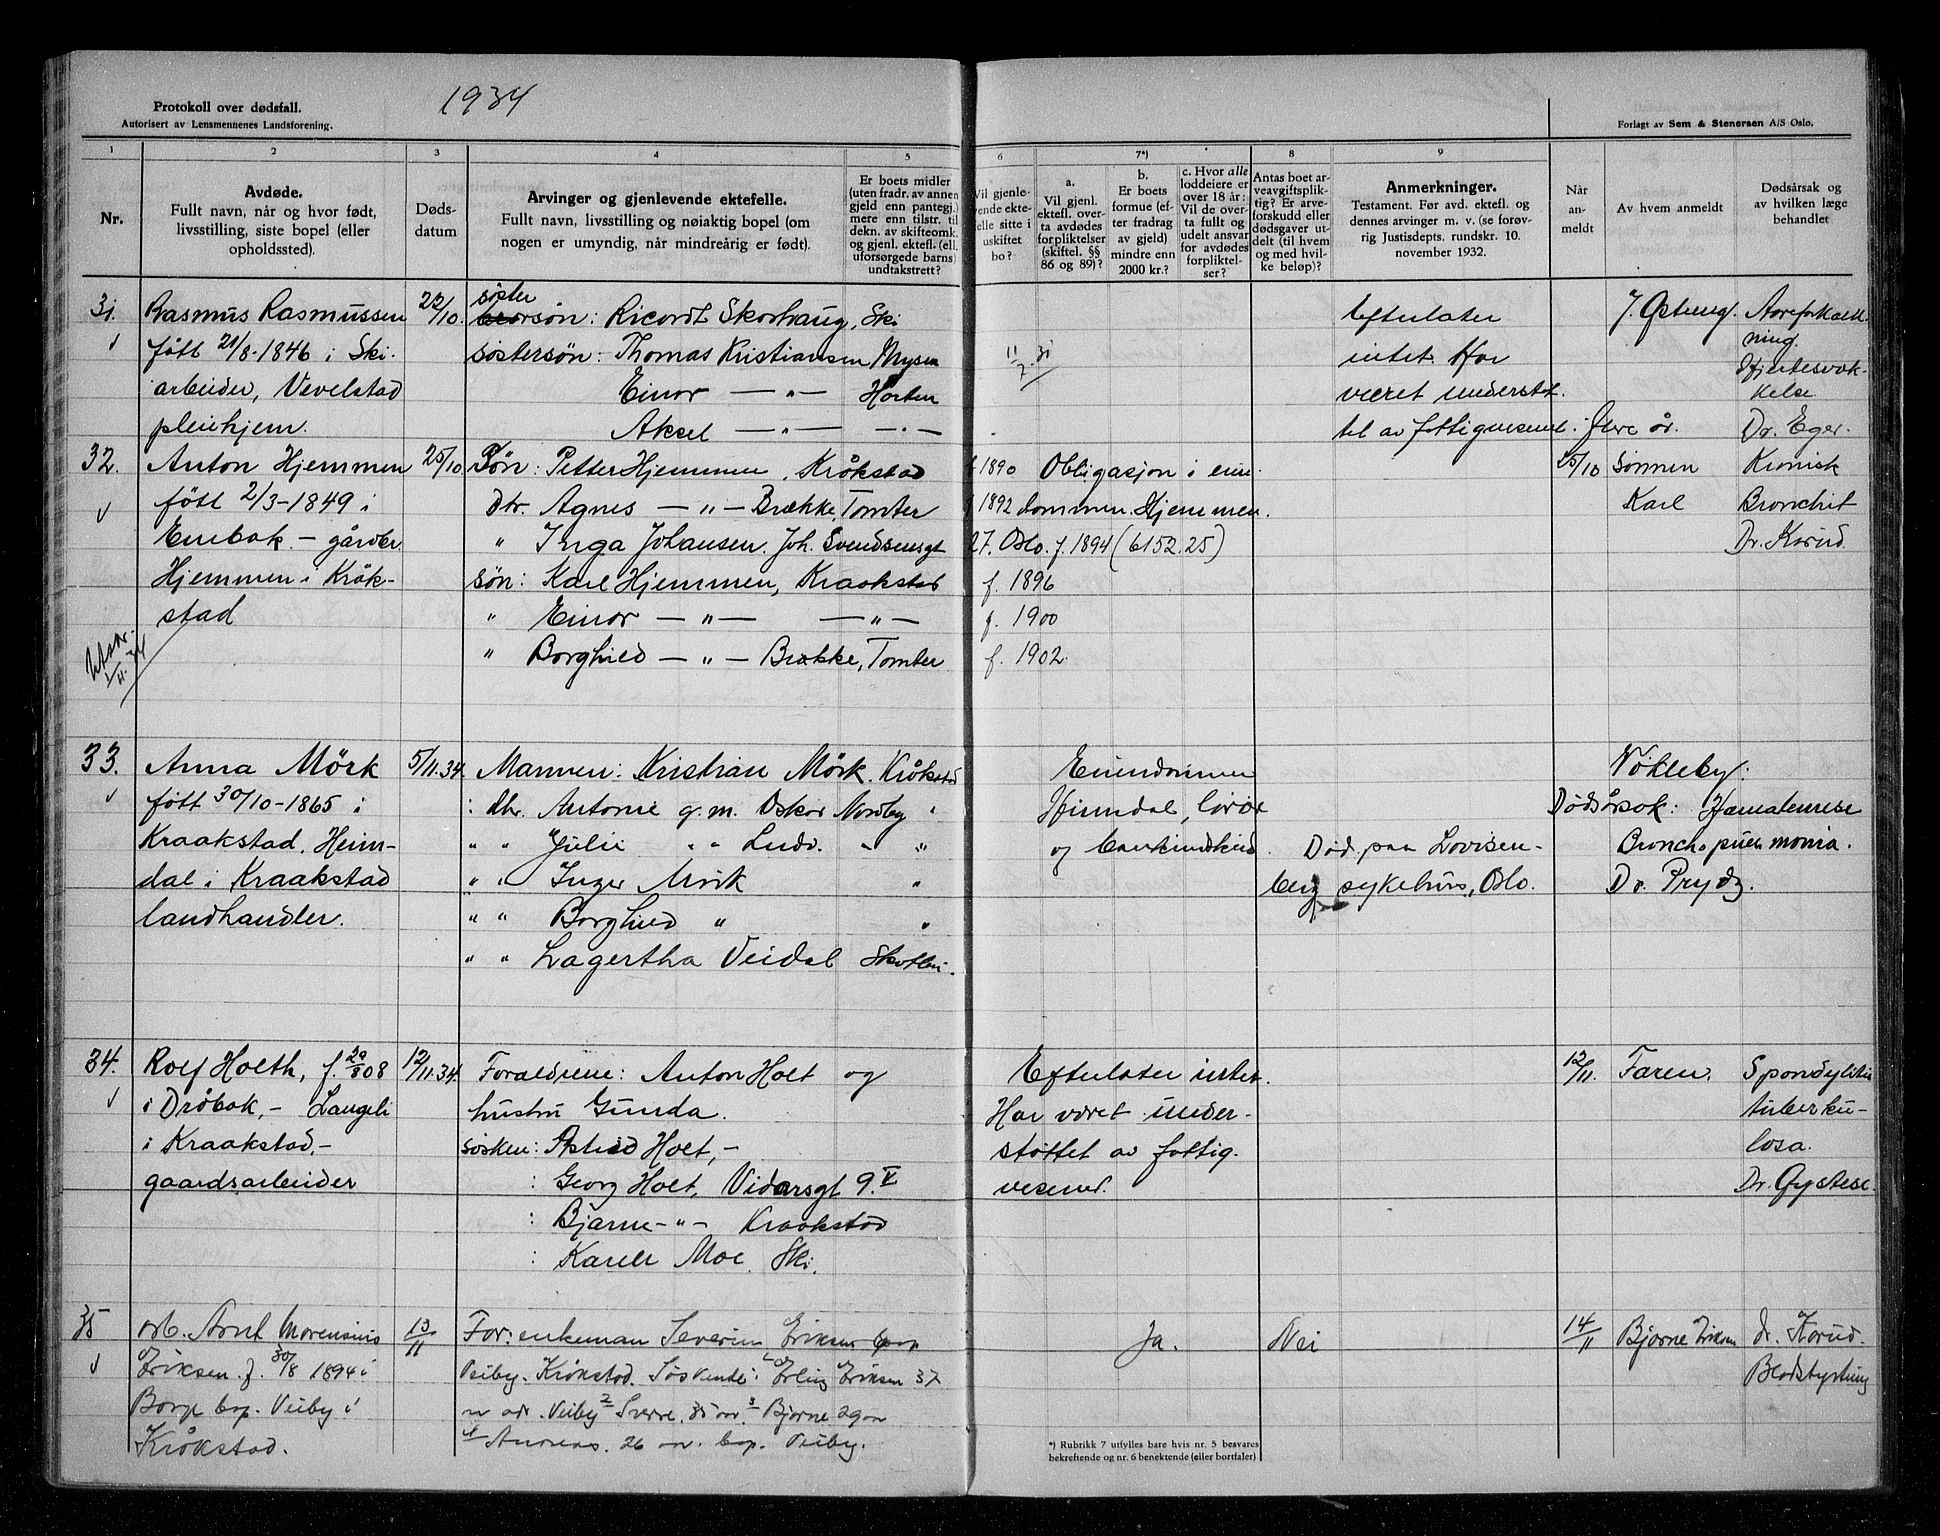 1934
Protokoll over dødsfall.
Autorisert av Lensmennenes Landsforening.
Forlagt av Sem & Stenersen A/S Oslo.
1 2 3 4 5 6 7*) 8 9
Nr.
Avdøde.
Fullt navn, når og hvor født,
livsstilling, siste bopel (eller
opholdssted).
Døds-
datum
Arvinger og gjenlevende ektefelle.
Fullt navn, livsstilling og nøiaktig bopel (om
nogen er umyndig, når mindreårig er født).
Er boets midler
(uten fradr. av annen
gjeld enn pantegj.)
mere enn tilstr. til
dekn. av skifteomk.
og gjenl. ektef. (ell.
uforsørgede barns)
undtakstrett?
Vil gjenle-
vende ekte-
elle sitte i
uskiftet
bo?
a.
Vil gjenl.
ektef. over-
ta avdødes
forpliktelser
(skiftel. §§
86 og 89)?
b.
Er boets
formue (ef-
ter fradrag
av gjeld)
mindre enn
2000 kr.?
c. Hvor alle
loddeiere er
over 18 år:
Vil de over-
ta fullt og
udelt ansvar
for avdødes
forpliktel-
ser?
Antas boet ar-
veavgiftsplik-
tig? Er arve-
forskudd eller
dødsgaver ut-
delt (til hvem
og med hvil-
ke beløp)?
Anmerkninger.
Testament. Før avd. ektef. og
dennes arvinger m. v. (se forøv-
rig Justisdepts. rundskr. 10.
november 1932.
Når
an-
meldt
Av hvem anmeldt
Dødsårsak og
av hvilken læge
behandlet
31.
Rasmus Rasmussen
født 21/8-1846 i Ski.
arbeider, Vevelstad
pleiehjem.
22/10.
søster
brorsøn: Ricordt Skorhaug, Ski
søstersøn: Thomas Kristiansen Mysen
Einar — " — Horten
Aksel — " — — " —
11/2 31
Efterlater
intet. Har
været understøt.
tet av fattigvesenet i flere år.
J. Østeng.
Aareforkalk-
ning.
Hjertesvæk-
kelse
Dr. Eger.
32.
Anton Hjemmen
født 2/3-1849 i
Enebak. - gårdbr.
Hjemmen i Kråk-
stad
Utskr.
1/11. 34
25/10
Søn: Petter Hjemmen, Kråkstad f 1890
Dtr. Agnes — " — Brække, Tomter f 1892
" Inga Johansen. Joh. Svendsensgt 27. Oslo. f. 1894 (6152.25)
søn: Karl Hjemmen, Kraakstad f. 1896
" Einar — " — — " — f. 1900
" Borghild — " — Brække, Tomter f. 1902.
Obligasjon i eien-
dommen Hjemmen.
25/10
Sønnen
Karl
Kronisk
Bronchit
Dr. Korud.
33.
Anna Mörk
født 30/10-1865 i
Kraakstad, Heim-
dal i Kraakstad
landhandler.
5/11.34.
Mannen: Kristian Mörk. Kråkstad
: Dtr. Antonie g.m. Oskar Nordby "
" " Julie " " Ludv. " "
" " Inger Mörk "
" " Borghild " "
" " Lagertha Veidal Skotbu.
Eiendommen
Heimdal,
og
Død paa Lovisen-
berg sykehus, Oslo.
Nökleby:
Dødsårsak: Hæmatemese
Bronchopneumonia.
Dr. Prydz
34.
Rolf Holth, f. 20/8 08
i Drøbak, - Langeli
i Kraakstad, -
gaardsarbeider
12/11.34.
Foreldrene: Anton Holt og
hustru Gunda.
søsken: Astrid Holt, -
: Georg Holt, Vidarsgt 9.V
: Bjarne - " - Kraakstad
: Karen Moe. Ski.
Efterlater intet.
Har været under-
støttet av fattig-
vesenet.
12/11.
Faren.
Spondylitis
tuberku-
losa.
Dr. Gystese.
35
arb. Arnt Marensius
Eriksen f. 30/8 1894 i
Borge bop. Veiby i
Kråkstad.
13/11
Far: enkeman Severin Eriksen bop
Veiby. Kråkstad. Søskende: 1 Erling Eriksen 37
år adr. Veiby 2 Sverre 35 år. 3 Bjarne 29 år
4 Andreas. 26 år. bop. Veiby.
Ja.
Nei
14/11
Bjarne Eriksen
dr. Korud.
Blodstyrtning
*) Rubrikk 7 utfylles bare hvis nr. 5 besvares
bekreftende og nr. 6 benektende (eller bortfaller)